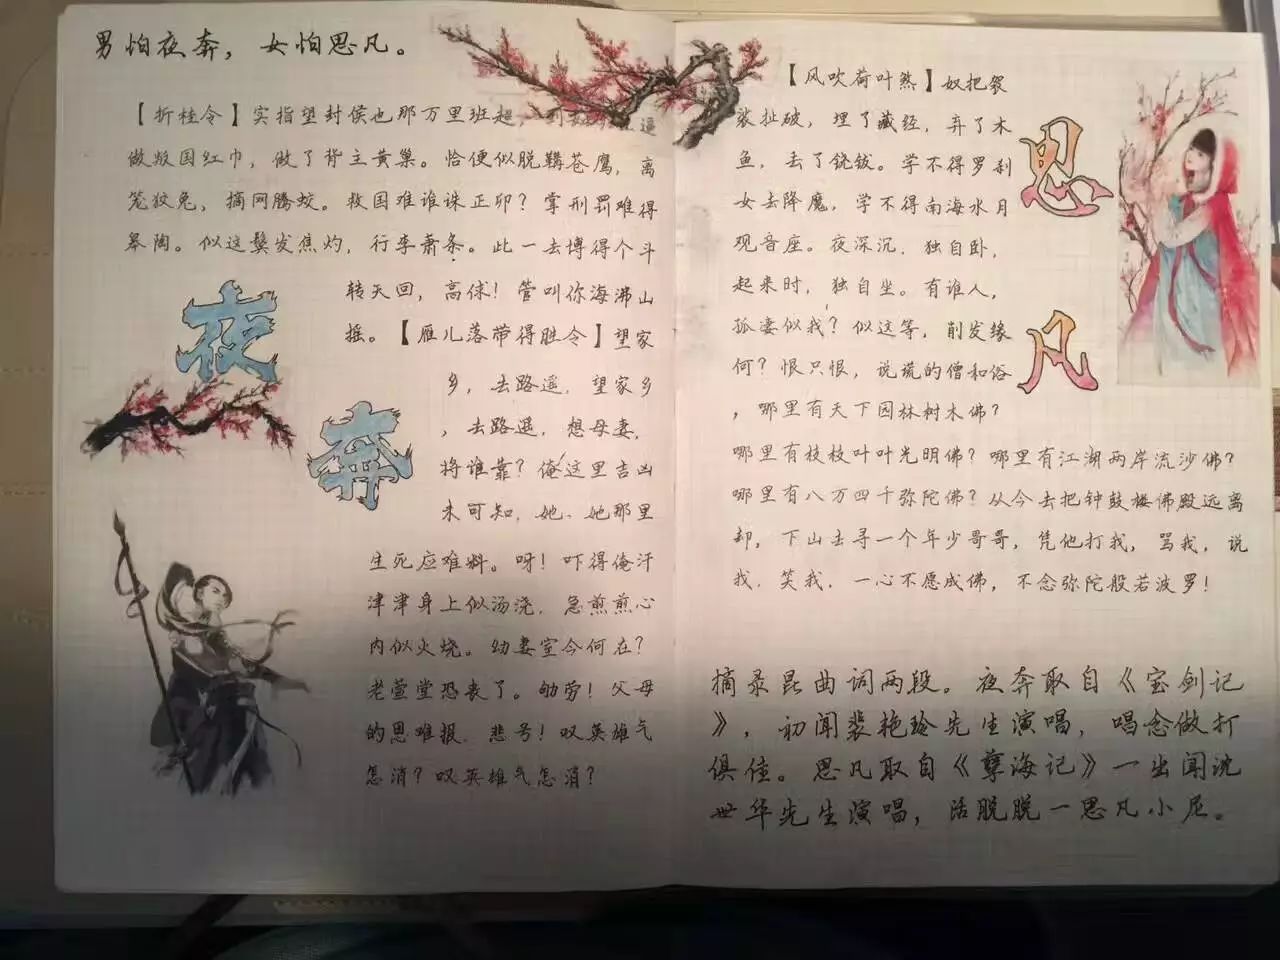 男怕夜奔，女怕思凡。
【折桂令】实指望封侯也那万里班超，到
做叛国红巾，做了背主黄巢。恰便似脱鞲苍鹰，离
笼狡兔，摘网腾蛟。救国难谁诛正卯？掌刑罚难得
皋陶。似这鬓发焦灼，行李萧条。此一去博得个斗
转天回，高俅！管叫你海沸山
摇。【雁儿落带得胜令】望家
乡，去路遥，望家乡
，去路遥，想母妻，
将谁靠？俺这里吉凶
未可知，她、她那里
生死应难料。呀！吓得俺汗
津津身上似汤浇，急煎煎心
内似火烧。幼妻室今何在？
老萱堂恐丧了。劬劳！父母
的恩难报，悲号！叹英雄气
怎消？叹英雄气怎消？
夜
奔
【风吹荷叶煞】奴把袈
裟扯破，埋了藏经，弃了木
鱼，去了铙钹。学不得罗刹
女去降魔，学不得南海水月
观音座。夜深沉，独自卧，
起来时，独自坐。有谁人，
孤凄似我？似这等，削发缘
何？恨只恨，说谎的僧和俗
，哪里有天下园林树木佛？
哪里有枝枝叶叶光明佛？哪里有江湖两岸流沙佛？
哪里有八万四千弥陀佛？从今去把钟鼓楼佛殿远离
却，下山去寻一个年少哥哥，凭他打我，骂我，说
我，笑我，一心不愿成佛，不念弥陀般若波罗！
思
凡
摘录昆曲词两段。夜奔取自《宝剑记
》，初闻裴艳玲先生演唱，唱念做打
俱佳。思凡取自《孽海记》一出闻沈
世华先生演唱，活脱脱一思凡小尼。